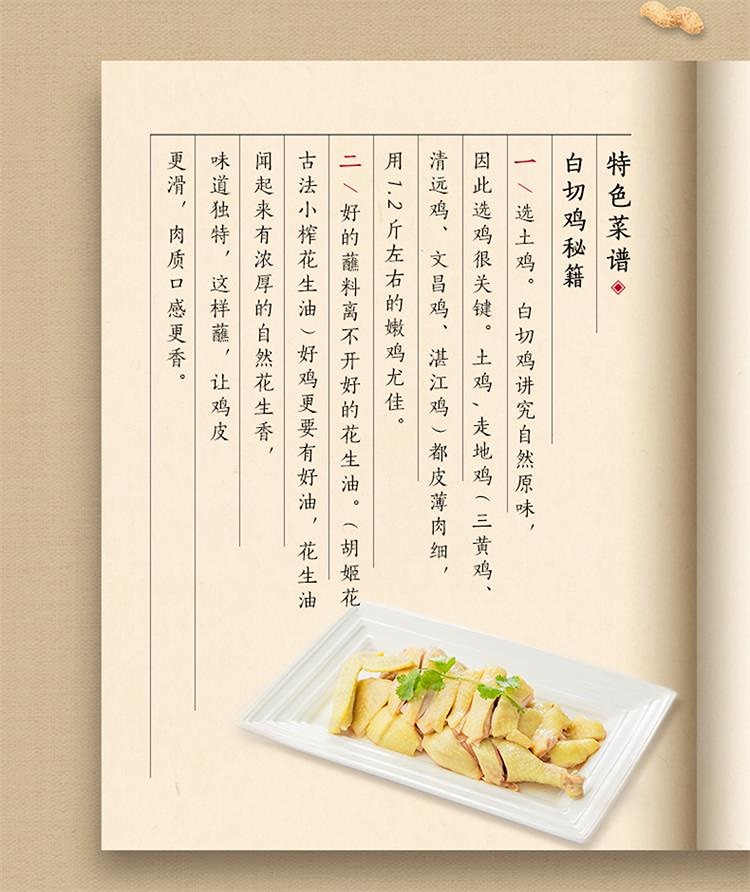 特色菜谱
白切鸡秘籍
一/选土鸡。白切鸡讲究自然原味，
因此选鸡很关键。土鸡、走地鸡（三黄鸡、
清远鸡、文昌鸡、湛江鸡）都皮薄肉细，
用1.2斤左右的嫩鸡尤佳。
二/好的蘸料离不开好的花生油。（胡姬花
古法小榨花生油）好鸡更要有好油，花生油
闻起来有浓厚的自然花生香，
味道独特，这样蘸，让鸡皮
更滑，肉质口感更香。